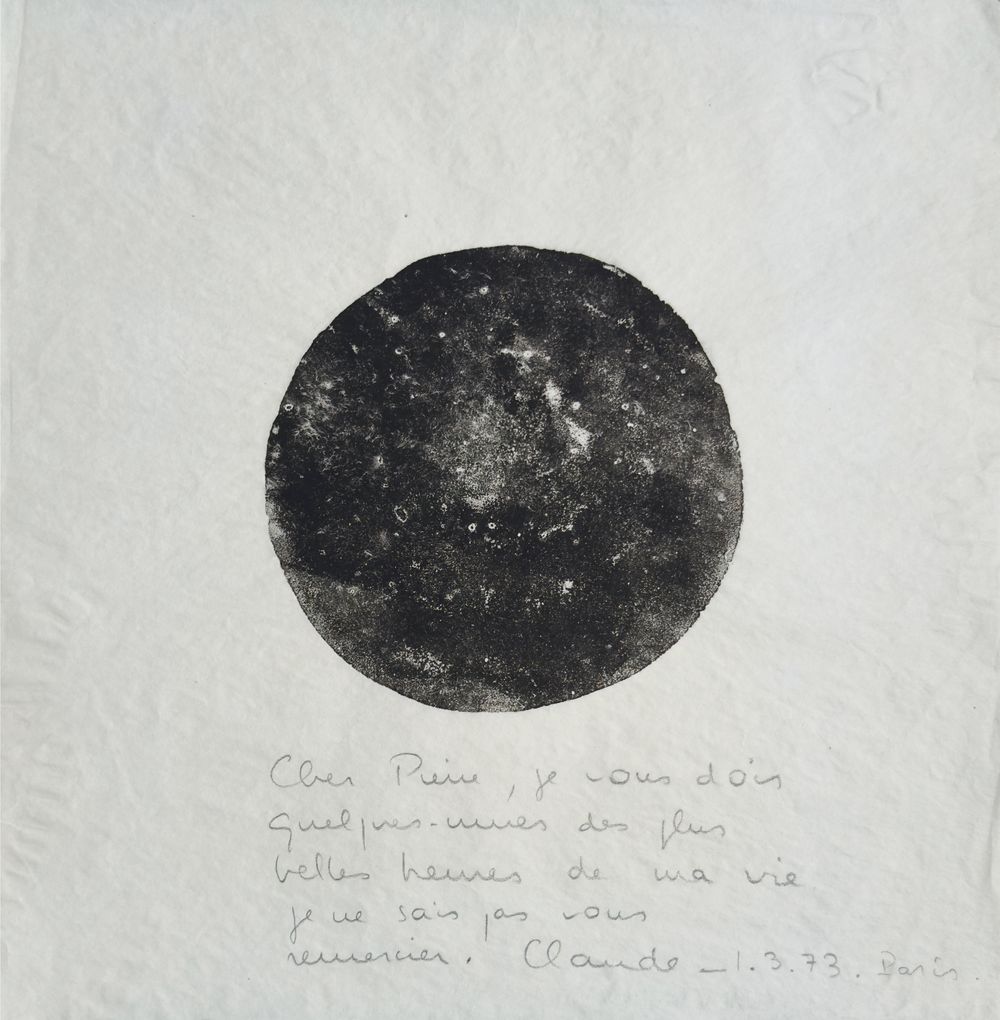 Cher Pierre, je vous dois
quelques-unes des plus
belles heures de ma vie
je ne sais pas vous
remercier. Claude – 1.3.73. Paris.